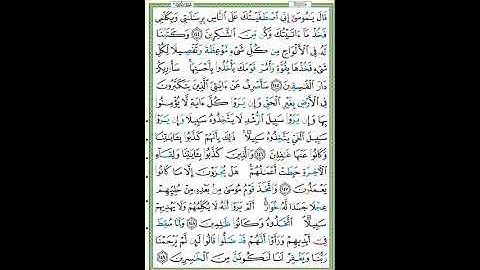 قَالَ يَٰمُوسَىٰٓ إِنِّي ٱصْطَفَيْتُكَ عَلَى ٱلنَّاسِ بِرِسَٰلَٰتِي وَبِكَلَٰمِي
فَخُذْ مَآ ءَاتَيْتُكَ وَكُن مِّنَ ٱلشَّٰكِرِينَ ١٤٤ وَكَتَبْنَا
لَهُۥ فِي ٱلْأَلْوَاحِ مِن كُلِّ شَيْءٍ مَّوْعِظَةً وَتَفْصِيلًا لِّكُلِّ
شَيْءٍ فَخُذْهَا بِقُوَّةٍ وَأْمُرْ قَوْمَكَ يَأْخُذُوا۟ بِأَحْسَنِهَا سَأُو۟رِيكُمْ
دَارَ ٱلْفَٰسِقِينَ ١٤٥ سَأَصْرِفُ عَنْ ءَايَٰتِيَ ٱلَّذِينَ يَتَكَبَّرُونَ
فِي ٱلْأَرْضِ بِغَيْرِ ٱلْحَقِّ وَإِن يَرَوْا۟ كُلَّ ءَايَةٍ لَّا يُؤْمِنُوا۟
بِهَا وَإِن يَرَوْا۟ سَبِيلَ ٱلرُّشْدِ لَا يَتَّخِذُوهُ سَبِيلًا وَإِن يَرَوْا۟
سَبِيلَ ٱلْغَيِّ يَتَّخِذُوهُ سَبِيلًا ذَٰلِكَ بِأَنَّهُمْ كَذَّبُوا۟ بِـَٔايَٰتِنَا
وَكَانُوا۟ عَنْهَا غَٰفِلِينَ ١٤٦ وَٱلَّذِينَ كَذَّبُوا۟ بِـَٔايَٰتِنَا وَلِقَآءِ
ٱلْءَاخِرَةِ حَبِطَتْ أَعْمَٰلُهُمْ هَلْ يُجْزَوْنَ إِلَّا مَا كَانُوا۟
يَعْمَلُونَ ١٤٧ وَٱتَّخَذَ قَوْمُ مُوسَىٰ مِنۢ بَعْدِهِۦ مِنْ حُلِيِّهِمْ
عِجْلًا جَسَدًا لَّهُۥ خُوَارٌ أَلَمْ يَرَوْا۟ أَنَّهُۥ لَا يُكَلِّمُهُمْ وَلَا يَهْدِيهِمْ
سَبِيلًا ٱتَّخَذُوهُ وَكَانُوا۟ ظَٰلِمِينَ ١٤٨ وَلَمَّا سُقِطَ
فِيٓ أَيْدِيهِمْ وَرَأَوْا۟ أَنَّهُمْ قَدْ ضَلُّوا۟ قَالُوا۟ لَئِن لَّمْ يَرْحَمْنَا
رَبُّنَا وَيَغْفِرْ لَنَا لَنَكُونَنَّ مِنَ ٱلْخَٰسِرِينَ ١٤٩